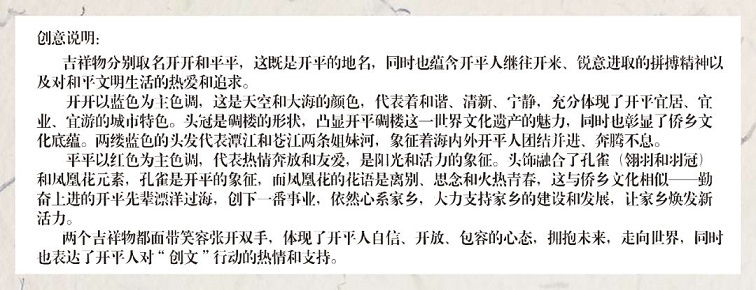 创意说明:
吉祥物分别取名开开和平平，这既是开平的地名，同时也蕴含开平人继往开来、锐意进取的拼搏精神以
及对和平文明生活的热爱和追求。
开开以蓝色为主色调，这是天空和大海的颜色，代表着和谐、清新、宁静，充分体现了开平宜居、宜
业、宜游的城市特色。头冠是碉楼的形状，凸显开平碉楼这一世界文化遗产的魅力，同时也彰显了侨乡文
化底蕴。两缕蓝色的头发代表潭江和苍江两条姐妹河，象征着海内外开平人团结并进、奔腾不息。
平平以红色为主色调，代表热情奔放和友爱，是阳光和活力的象征。头饰融合了孔雀（翎羽和羽冠）
和凤凰花元素，孔雀是开平的象征，而凤凰花的花语是离别、思念和火热青春，这与侨乡文化相似——勤
奋上进的开平先辈漂洋过海，创下一番事业，依然心系家乡，大力支持家乡的建设和发展，让家乡焕发新
活力。
两个吉祥物都面带笑容张开双手，体现了开平人自信、开放、包容的心态，拥抱未来，走向世界，同时
也表达了开平人对“创文”行动的热情和支持。